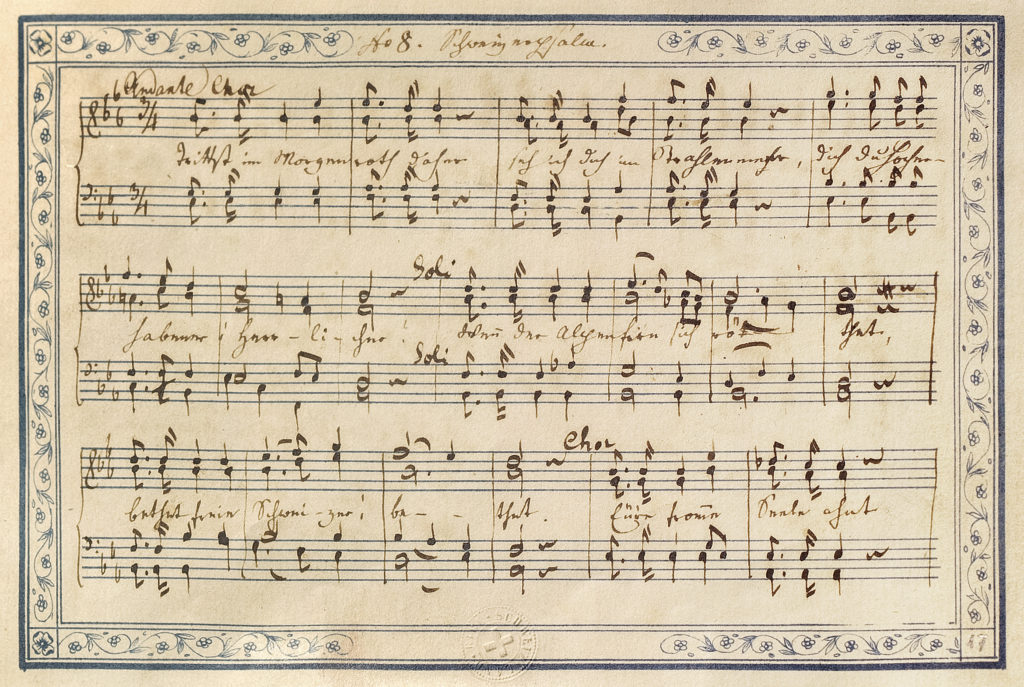 No 8. Schweizerpsalm.
Andante Chor
3/4
Trittst im Morgenroth daher seh ich dich im Strahlenmeer, dich du Hocher-
3/4
Soli
habener! Herr-li-cher! Wenn der Alpenfirn sich röthet,
Soli
Chor
bethet freie Schwei-zer! be-- thet. Eure fromme Seele ahnt